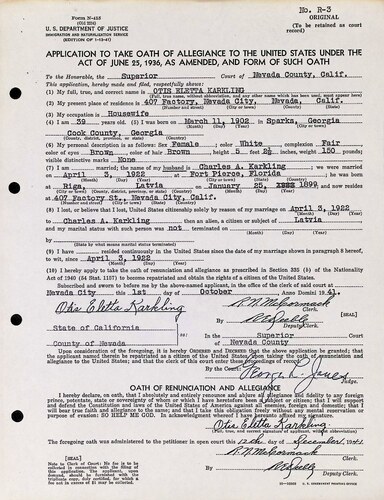 Form N-415
(Old 2214)
U. S. DEPARTMENT OF JUSTICE
IMMIGRATION AND NATURALIZATION SERVICE
(EDITION OF 1-13-41)
No. R-3
ORIGINAL
(To be retained as court record)
APPLICATION TO TAKE OATH OF ALLEGIANCE TO THE UNITED STATES UNDER THE
ACT OF JUNE 25, 1936, AS AMENDED, AND FORM OF SUCH OATH
To the Honorable, the Superior Court of Nevada County, Calif.
This application, hereby made and filed, respectfully shows:
(1) My full, true, and correct name is OTIS ELETTA KARKLING
(Full, true name, without abbreviation, and any other name which has been used, must appear here)
(2) My present place of residence is 407 Factory, Nevada City, Nevada, Calif.
(Number and street) (City or town) (County) (State)
(3) My occupation is Housewife
(4) I am 39 years old. I was born on March 11, 1902 in Sparks, Georgia
(Month) (Day) (Year) (City or town)
Cook County, Georgia
(County, district, province, or state) (Country)
(5) My personal description is as follows: Sex Female, color White, complexion Fair
color of eyes Brown, color of hair Brown, height 5 feet 2½ inches, weight 150 pounds;
visible distinctive marks None
(6) I am married; the name of my husband is Charles A. Karkling; we were married
on April 3, 1922 at Fort Pierce, Florida; he was born
(Month) (Day) (Year) (City or town) (State or country)
at Riga, Latvia on January 25, 1899, and now resides
(City or town) (County, district, province, or state) (Country) (Month) (Day) (Year)
at 407 Factory St., Nevada City, Calif.
(Number and street) (City or town) (State or country)
(8) I lost, or believe that I lost, United States citizenship solely by reason of my marriage on April 3, 1922
(Month) (Day) (Year)
to Charles A. Karkling then an alien, a citizen or subject of Latvia
and my marital status with such person was not terminated on
(Month) (Day) (Year)
by
(State by what means marital status terminated)
(9) I have resided continuously in the United States since the date of my marriage shown in paragraph 8 hereof,
to wit, since April 3, 1922
(10) I hereby apply to take the oath of renunciation and allegiance as prescribed in section 335 (b) of the Nationality
Act of 1940 (54 Stat. 1157) to become repatriated and obtain the rights of a citizen of the United States.
Subscribed and sworn to before me by the above-named applicant, in the office of the clerk of said court at
Nevada City this 1st day of October Anno Domini 1941.
Otis Eletta Karkling
R. N. McCormack
Clerk.
By
Deputy Clerk.
[SEAL]
State of California
County of Nevada
In the Superior Court
of Nevada County
Upon consideration of the foregoing, it is hereby ORDERED and DECREED that the above application be granted; that
the applicant named herein be repatriated as a citizen of the United States, upon taking the oath of renunciation and
allegiance to the United States; and that the clerk of this court enter these proceedings of record.
By the Court:
Judge.
OATH OF RENUNCIATION AND ALLEGIANCE
I hereby declare, on oath, that I absolutely and entirely renounce and abjure all allegiance and fidelity to any foreign
prince, potentate, state, or sovereignty of whom or which I have heretofore been a subject or citizen; that I will support
and defend the Constitution and laws of the United States of America against all enemies, foreign and domestic; that I
will bear true faith and allegiance to the same; and that I take this obligation freely without any mental reservation or
purpose of evasion: SO HELP ME GOD. In acknowledgment whereof I have hereunto affixed my signature.
Otis Eletta Karkling
(Full, true, and correct signature of applicant, without abbreviation)
The foregoing oath was administered to the petitioner in open court this 12th day of December, 1941
R. N. McCormack
Clerk.
[SEAL]
By
Deputy Clerk.
U. S. GOVERNMENT PRINTING OFFICE